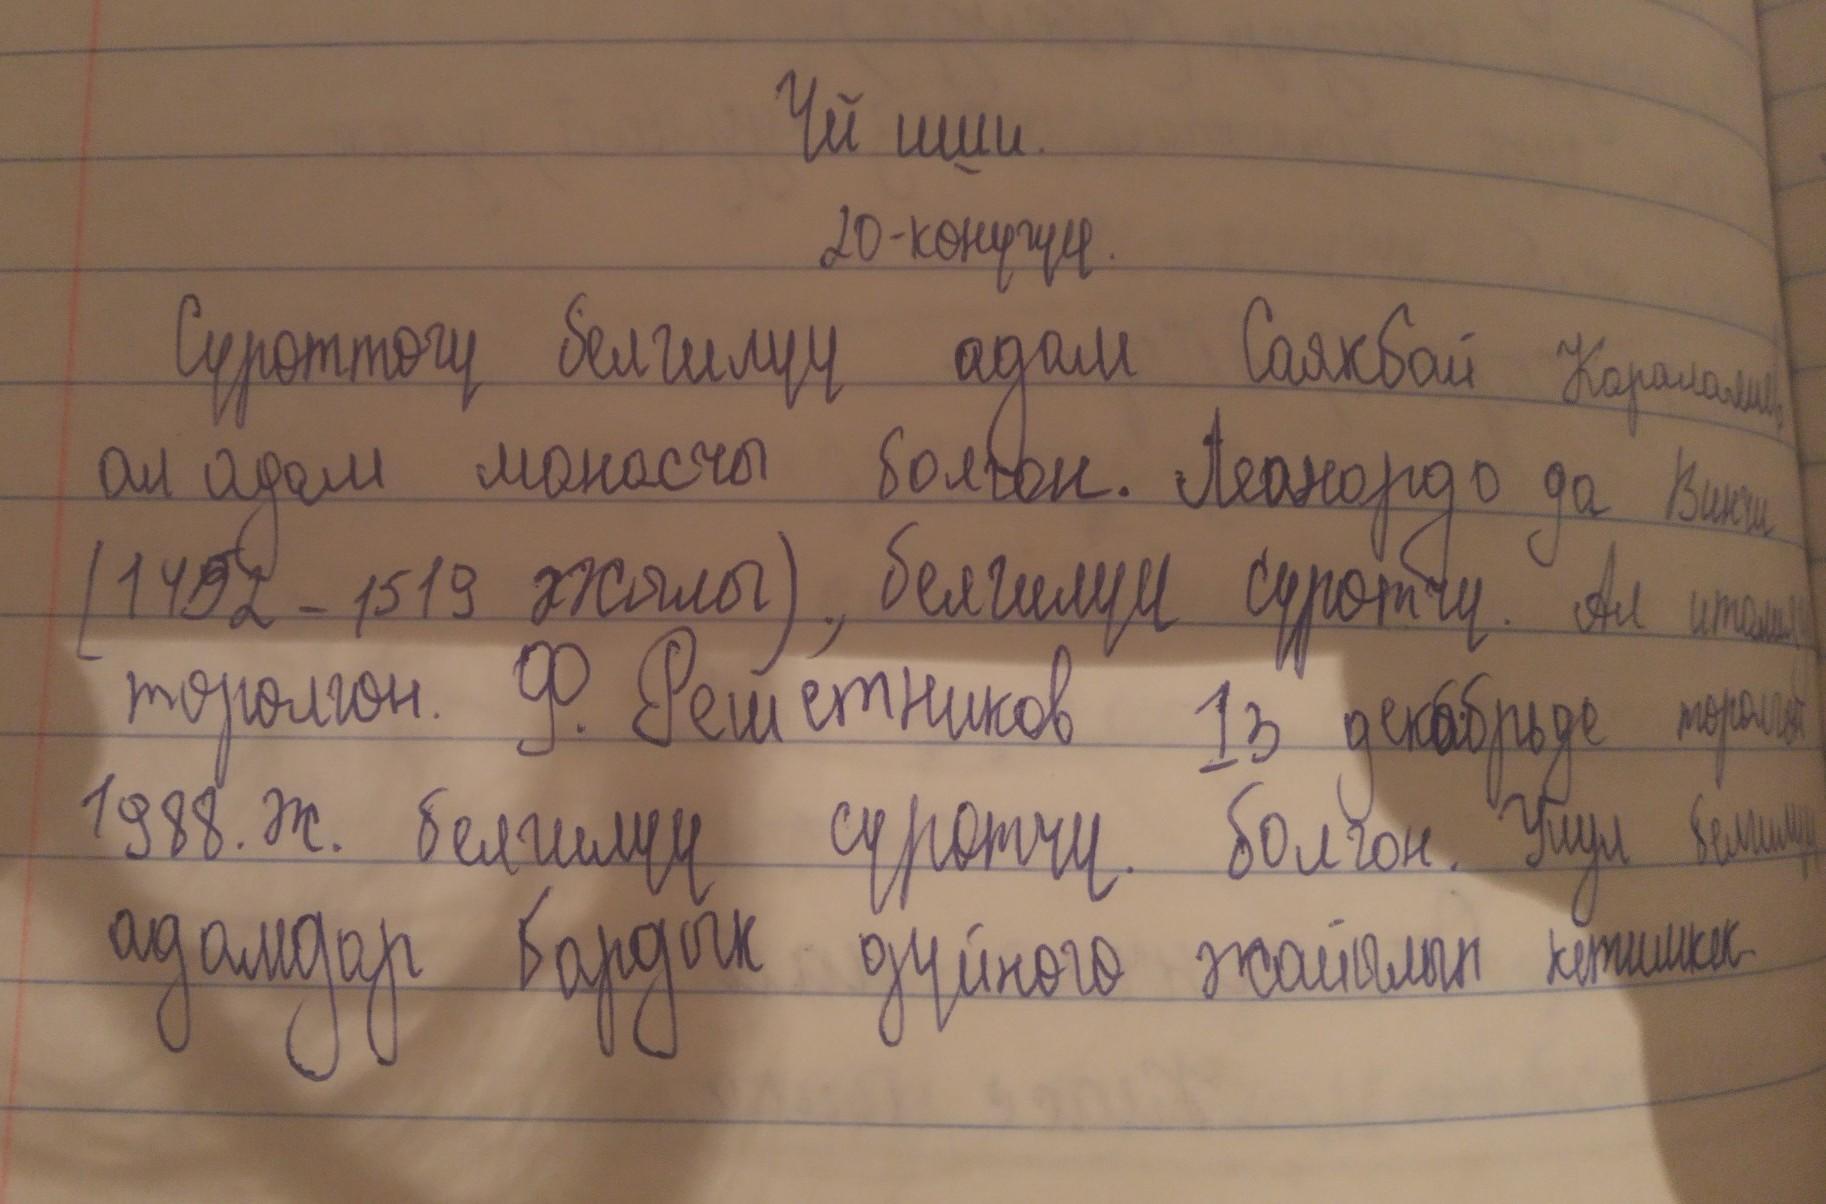 Үй иши.
20-көнүгүү.
Сүрөттөгү белгилүү адам Саякбай Каралаев,
ал адам манасчы болгон. Леанордо да Винчи
(1452-1519 жылы)., белгилүү сүрөтчү. Ал
төрөлгөн. Ф. Решетников 13 декабрьде төрөлгөн
1988.ж. белгилүү сүрөтчү. болгон. Улуу белгилүү
адамдар бардык дүйнөгө жайылып